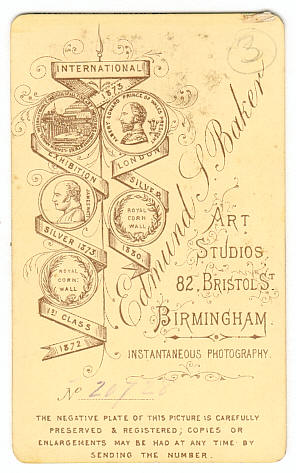 3
INTERNATIONAL
1873
ALBERT EDWARD PRINCE OF WALES
EXHIBITION
LONDON
SILVER
ROYAL
CORN
WALL
SILVER 1873
1880
ROYAL
CORN:
WALL
1ST CLASS
1872
Edmund S Baker
ART
STUDIOS
82, BRISTOL ST
BIRMINGHAM.
INSTANTANEOUS PHOTOGRAPHY.
No
THE NEGATIVE PLATE OF THIS PICTURE IS CAREFULLY
PRESERVED & REGISTERED; COPIES OR
ENLARGEMENTS MAY BE HAD AT ANY TIME BY
SENDING THE NUMBER.